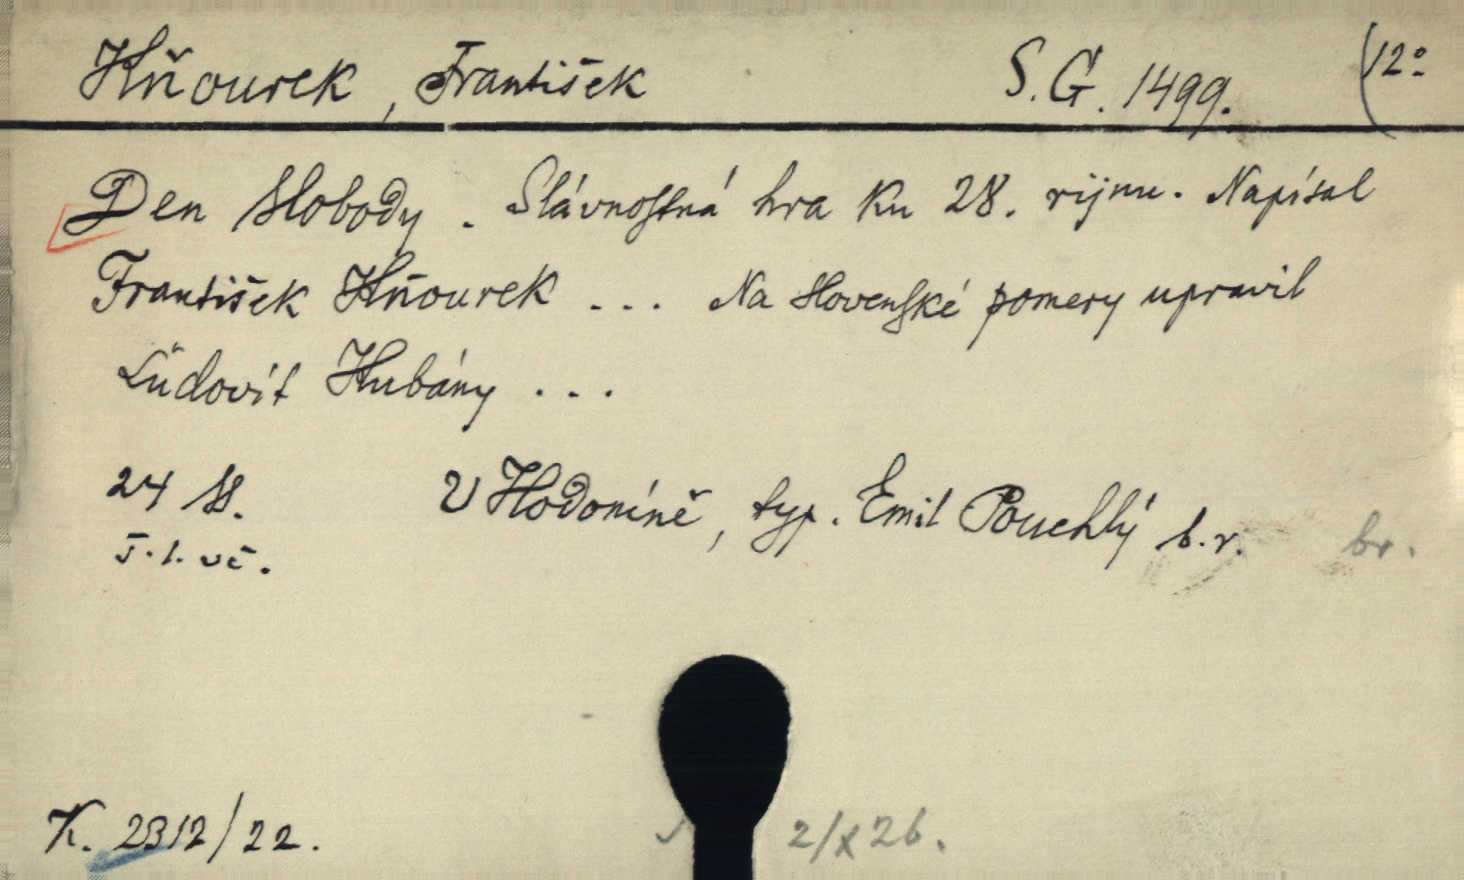 Hňourek, František S.G. 1499. (12°
Den slobody. Slávnostná hra ku 28. rijnu. Napísal
František Hňourek ... Na slovenské pomery upravil
Ľudovít Hubány ...
24 s. V Hodoníně, typ. Emil Pouchlý b.r. br.
T.l. vč.
K. 2312/22. 2/X 26.